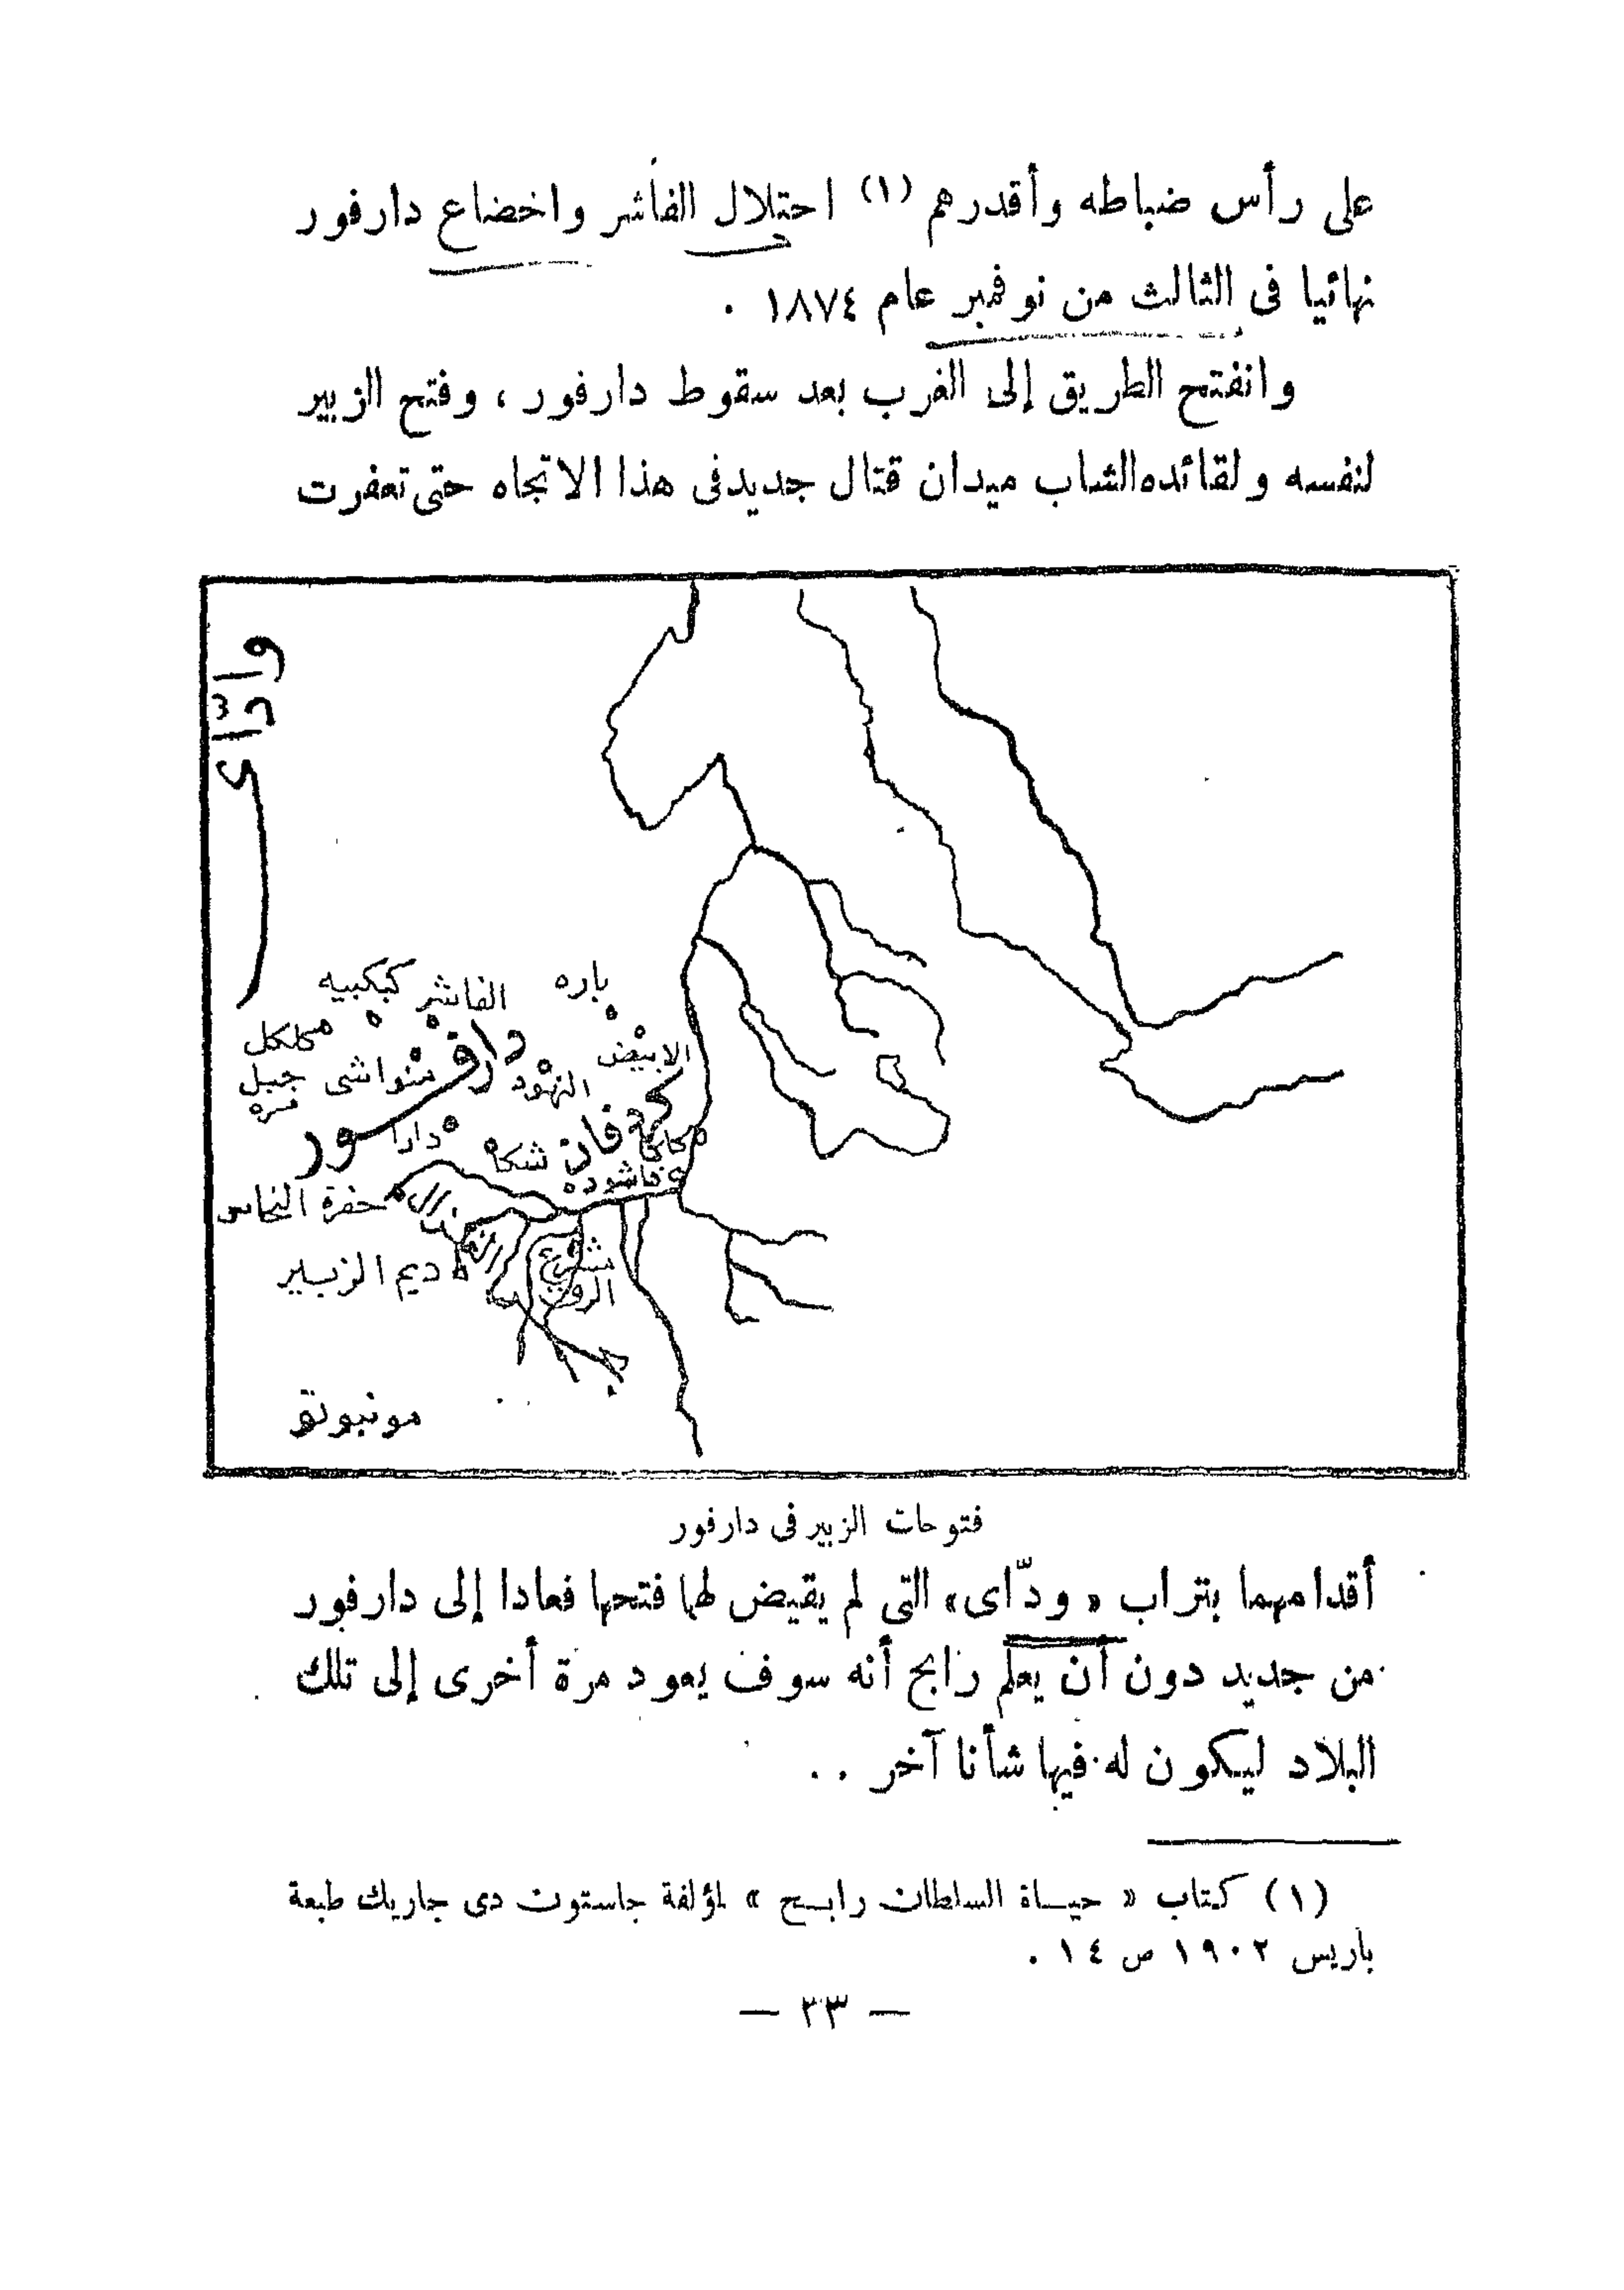 على رأس ضباطه وأقدرهم (١) احتلال الفاشر واخضاع دارفور
نهائيا فى الثالث من نوفمبر عام ١٨٧٤ .
وانفتح الطريق إلى الغرب بعد سقوط دارفور ، وفتح الزبير
لنفسه ولقائده الشاب ميدان قتال جديد فى هذا الاتجاه حتى تعفرت
وادّاى
باره
الفاشر
كبكبيه
كلكل
الابيض
النهود
منواشى
جبل
مره
دارفور
كردفان
شكا
دارا
كاكا
فاشوده
حفرة النحاس
ديم الزبير
مشرع
الرق
مونبوتو
فتوحات الزبير فى دارفور
أقدامهما بتراب « ودّاى » التى لم يقيض لهما فتحها فعادا إلى دارفور
من جديد دون أن يعلم رابح أنه سوف يعود مرة أخرى إلى تلك
البلاد ليكون له فيها شأنا آخر . .
(١) كتاب « حيـاة السلطان رابـح » لمؤلفة جاستون دى جاريك طبعة
باريس ١٩٠٢ ص ١٤ .
— ٢٣ —